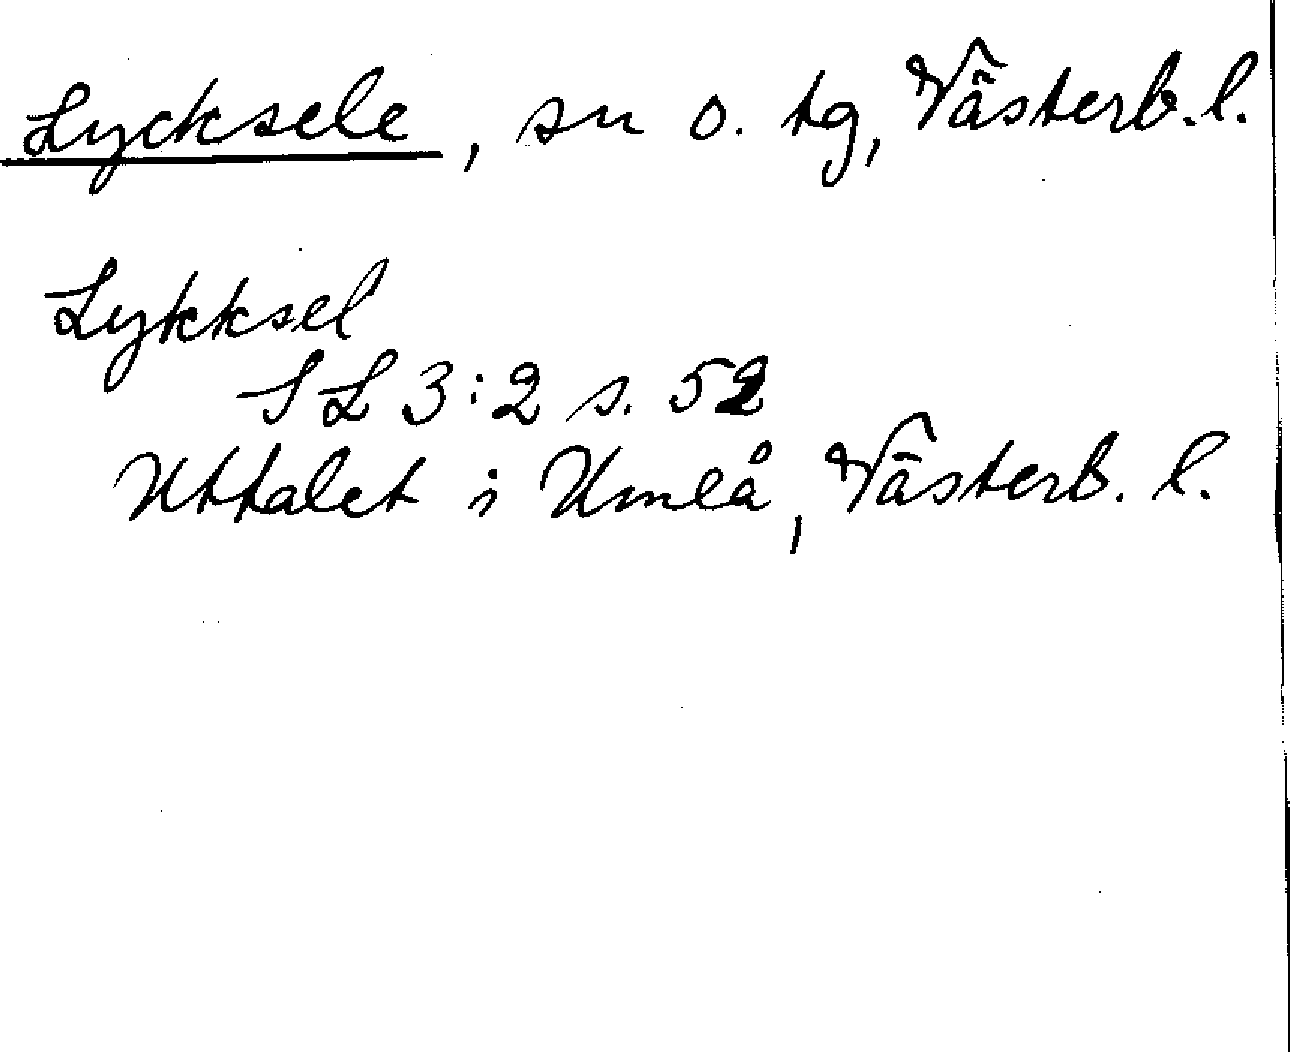 Lycksele, sn o. tg, Västerb.l.
Lykksel
SL 3:2 s. 52
Uttalet i Umeå, Västerb. l.